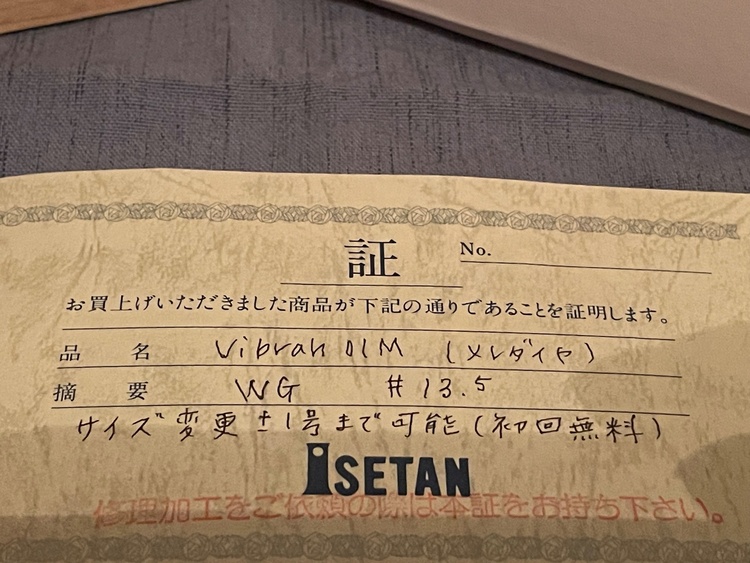 証
No.
お買上げいただきました商品が下記の通りであることを証明します。
品 名 Vibrah 01M (メレダイヤ)
摘 要 WG #13.5
サイズ変更±1号まで可能(初回無料)
ISETAN
修理加工をご依頼の際は本証をお持ち下さい。